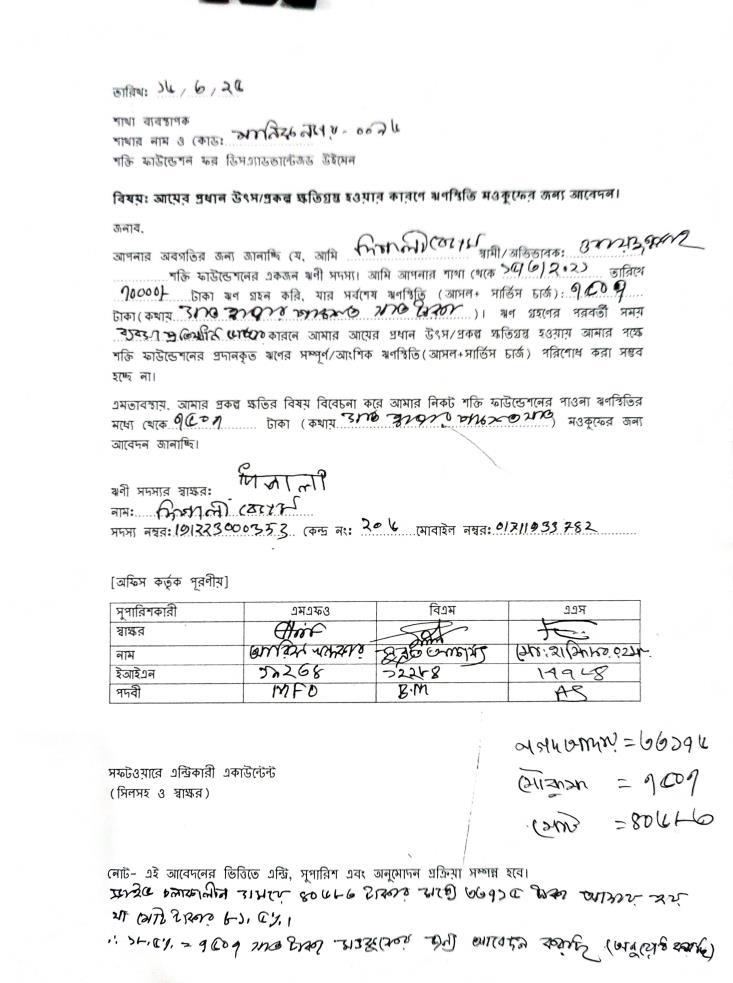 তারিখ: ১৬/৬/২৫
শাখা ব্যবস্থাপক
শাখার নাম ও কোড: মানিকনগর-০০৭৬
শক্তি ফাউন্ডেশন ফর ডিসএ্যাডভান্টেজড উইমেন
বিষয়: আয়ের প্রধান উৎস/প্রকল্প ক্ষতিগ্রস্থ হওয়ার কারণে ঋণস্থিতি মওকুফের জন্য আবেদন।
জনাব,
আপনার অবগতির জন্য জানাচ্ছি যে, আমি বেগম স্বামী/অভিভাবক:
শক্তি ফাউন্ডেশনের একজন ঋণী সদস্য। আমি আপনার শাখা থেকে তারিখে
৭০০০০/- টাকা ঋণ গ্রহন করি, যার সর্বশেষ ঋণস্থিতি (আসল+ সার্ভিস চার্জ): ৭৫০৭
টাকা(কথায় সাত হাজার পাঁচশত সাত টাকা)। ঋণ গ্রহণের পরবর্তী সময়
ব্যবসা কারনে আমার আয়ের প্রধান উৎস/প্রকল্প ক্ষতিগ্রস্থ হওয়ায় আমার পক্ষে
শক্তি ফাউন্ডেশনের প্রদানকৃত ঋণের সম্পূর্ণ/আংশিক ঋণস্থিতি(আসল+সার্ভিস চার্জ) পরিশোধ করা সম্ভব
হচ্ছে না।
এমতাবস্থায়, আমার প্রকল্প ক্ষতির বিষয় বিবেচনা করে আমার নিকট শক্তি ফাউন্ডেশনের পাওনা ঋণস্থিতির
মধ্যে থেকে ৭৫০৭ টাকা (কথায় সাত হাজার পাঁচশত সাত) মওকুফের জন্য
আবেদন জানাচ্ছি।
ঋণী সদস্যর স্বাক্ষর:
নাম: বেগম
সদস্য নম্বর: 191223000353 কেন্দ্র নং: ২০৬ মোবাইল নম্বর: 01711933782
[অফিস কর্তৃক পূরণীয়]
সুপারিশকারী এমএফও বিএম এএস
স্বাক্ষর
নাম
ইআইএন
পদবী MFO B.M AS
নগদ আদায় = ৩৩১৭৬
মৌকুফ = ৭৫০৭
মোট = ৪০৬৮৩
সফটওয়ারে এন্ট্রিকারী একাউন্টেন্ট
(সিলসহ ও স্বাক্ষর)
নোট- এই আবেদনের ভিত্তিতে এন্ট্রি, সুপারিশ এবং অনুমোদন প্রক্রিয়া সম্পন্ন হবে।
চলাকালীন সময়ে ৪০৬৮৩ টাকার মধ্যে টাকা আদায় হয়
যা মোট টাকার ৮১.৫%।
∴ ১৮.৫% = ৭৫০৭ সাত টাকা মওকুফের জন্য আবেদন করছি